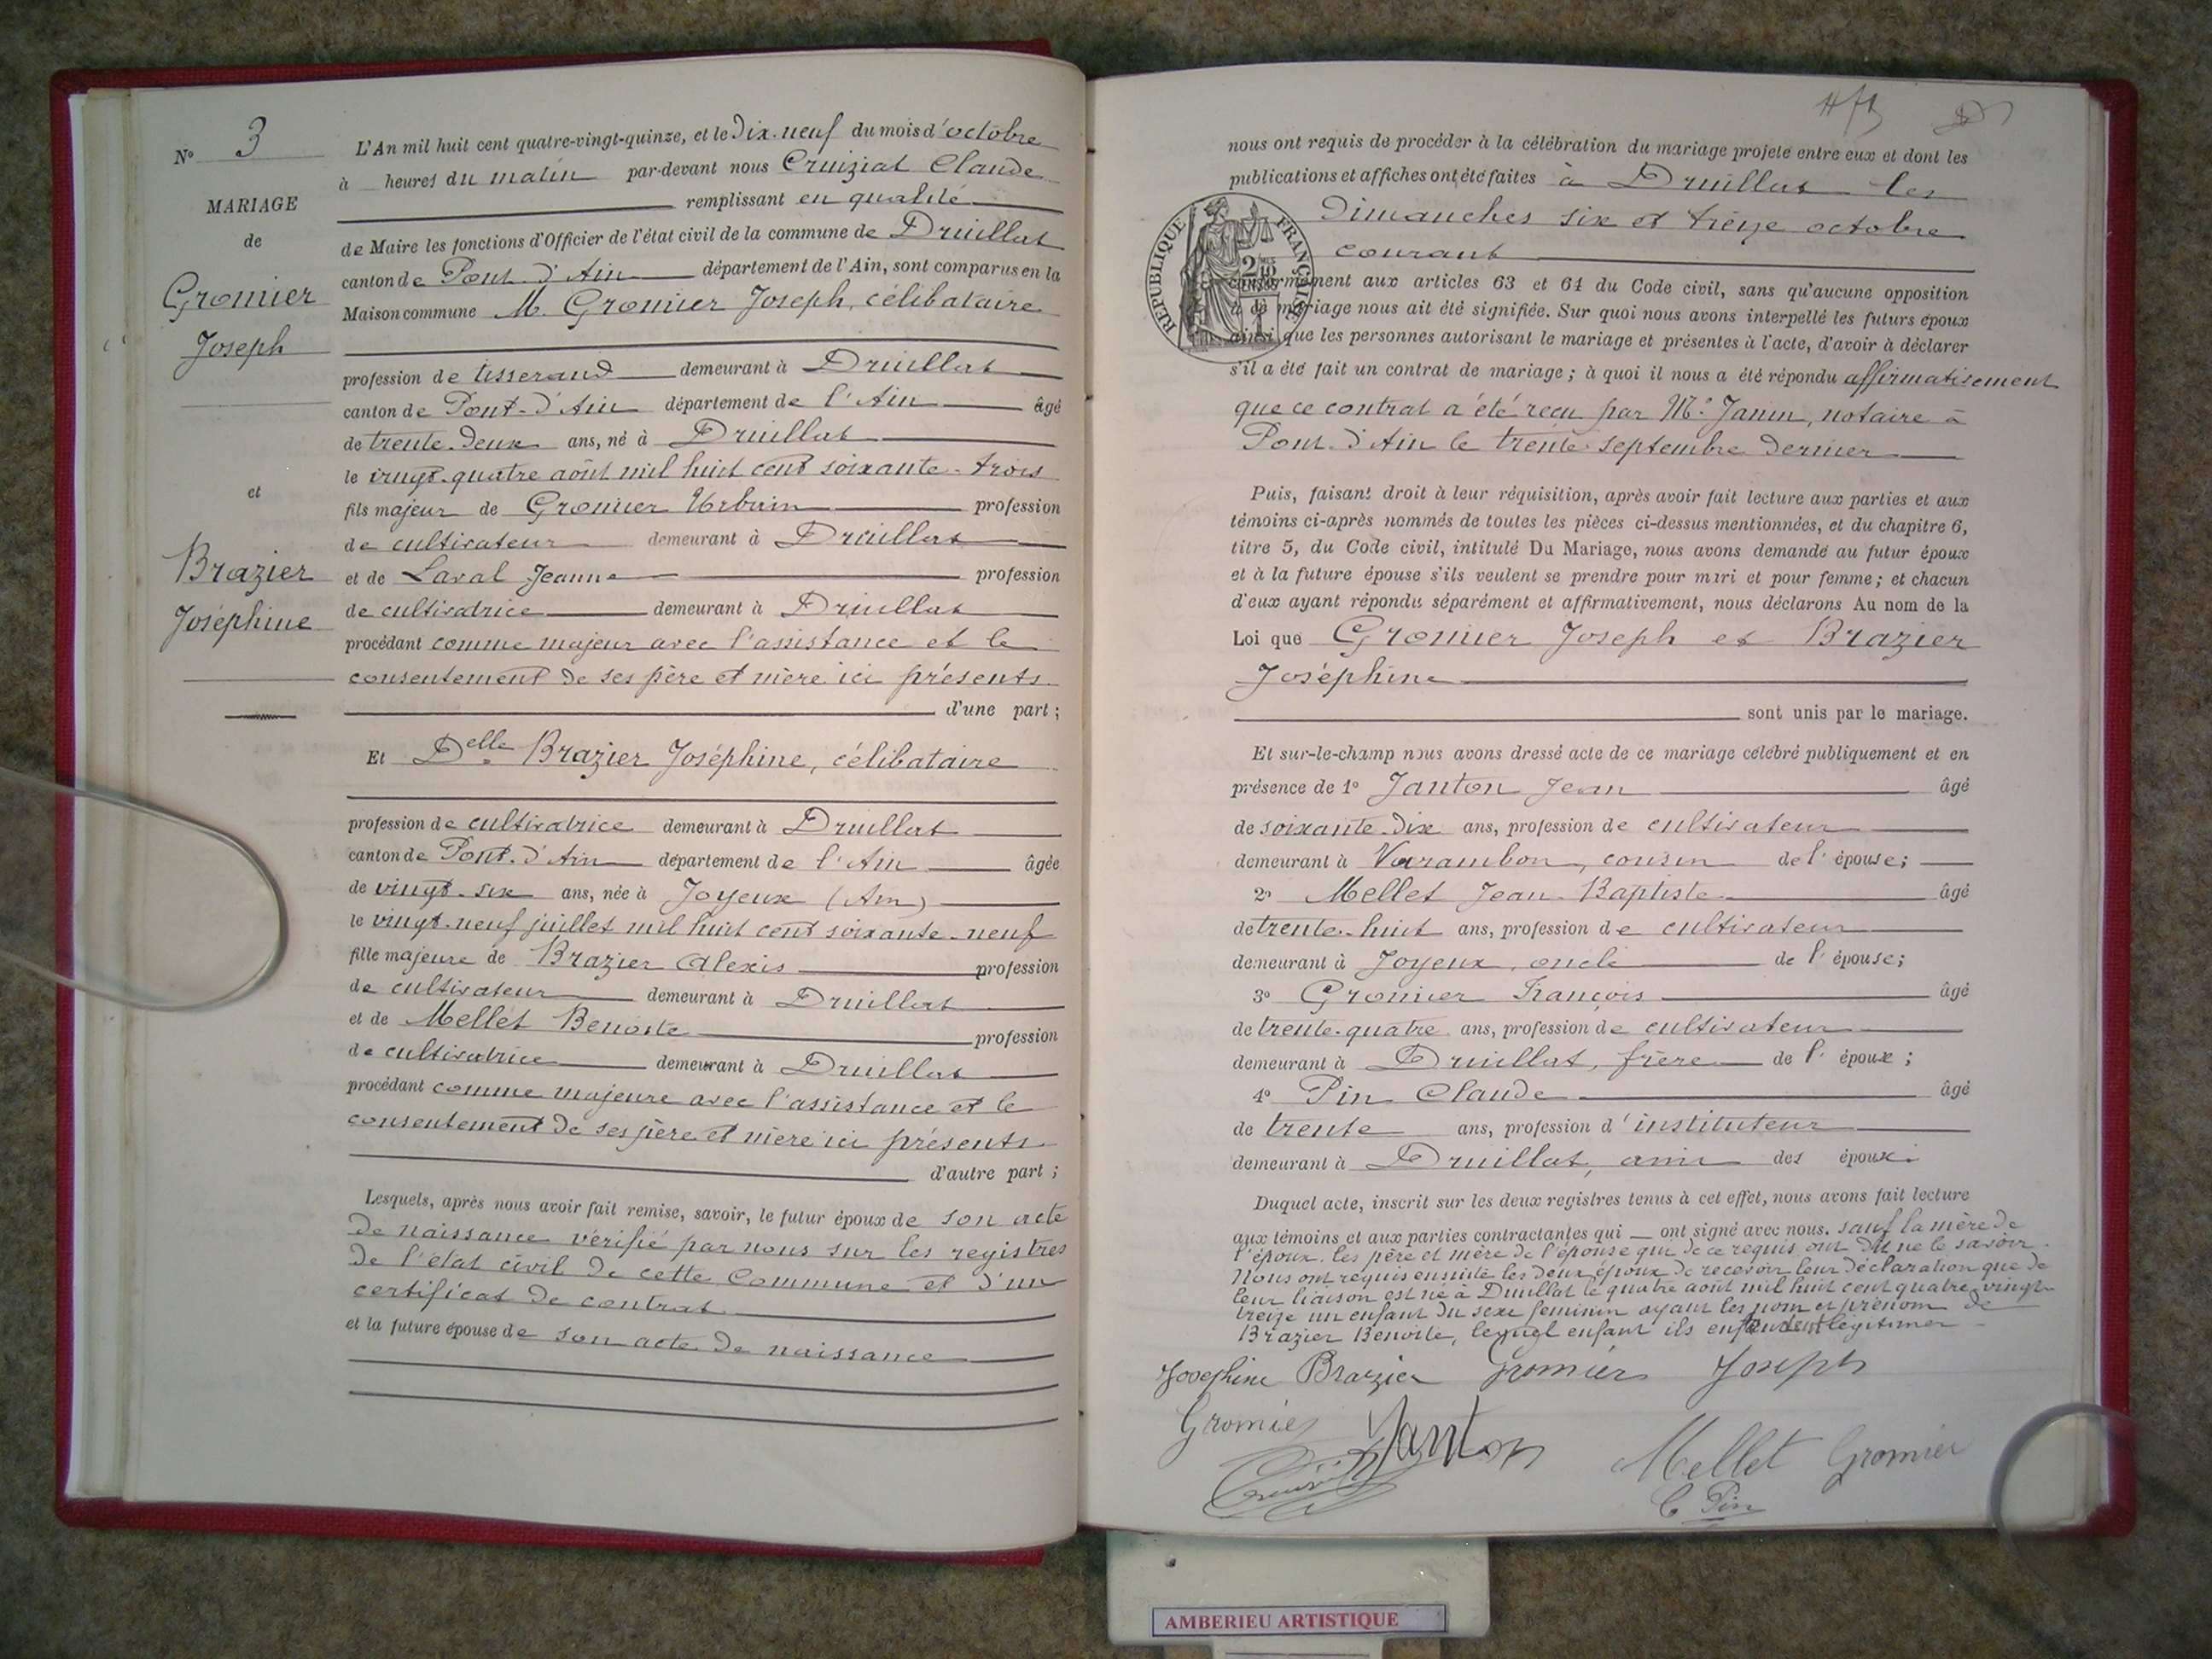 N° 3
MARIAGE
de
Gromier
Joseph
et
Brazier
Joséphine
L'An mil huit cent quatre-vingt-quinze, et le Dix-neuf du mois d'octobre
à heures du matin par-devant nous Cruiziat Claude
remplissant en qualité
de Maire les fonctions d'Officier de l'état civil de la commune de Druillat
canton de Pont d'Ain département de l'Ain, sont comparus en la
Maison commune M. Gromier Joseph, célibataire
profession de tisserand demeurant à Druillat
canton de Pont-d'Ain département de l'Ain âgé
de trente-deux ans, né à Druillat
le vingt-quatre août mil huit cent soixante-trois
fils majeur de Gromier Urbain profession
de cultivateur demeurant à Druillat
et de Laval Jeanne profession
de cultivatrice demeurant à Druillat
procédant comme majeur avec l'assistance et le
consentement de ses père et mère ici présents
d'une part ;
Et Delle Brazier Joséphine, célibataire
profession de cultivatrice demeurant à Druillat
canton de Pont-d'Ain département de l'Ain âgée
de vingt-six ans, née à Joyeux (Ain)
le vingt-neuf juillet mil huit cent soixante-neuf
fille majeure de Brazier Alexis profession
de cultivateur demeurant à Druillat
et de Mellet Benoite profession
de cultivatrice demeurant à Druillat
procédant comme majeure avec l'assistance et le
consentement de ses père et mère ici présents
d'autre part ;
Lesquels, après nous avoir fait remise, savoir, le futur époux de son acte
de naissance vérifié par nous sur les registres
de l'état civil de cette Commune et d'un
certificat de contrat
et la future épouse de son acte de naissance
nous ont requis de procéder à la célébration du mariage projeté entre eux et dont les
publications et affiches ont été faites à Druillat les
Dimanches six et treize octobre
courant
RÉPUBLIQUE FRANÇAISE
conformément aux articles 63 et 64 du Code civil, sans qu'aucune opposition
à ce mariage nous ait été signifiée. Sur quoi nous avons interpellé les futurs époux
ainsi que les personnes autorisant le mariage et présentes à l'acte, d'avoir à déclarer
s'il a été fait un contrat de mariage ; à quoi il nous a été répondu affirmativement
que ce contrat a été reçu par Me Janin, notaire à
Pont-d'Ain le trente septembre dernier
Puis, faisant droit à leur réquisition, après avoir fait lecture aux parties et aux
témoins ci-après nommés de toutes les pièces ci-dessus mentionnées, et du chapitre 6,
titre 5, du Code civil, intitulé Du Mariage, nous avons demandé au futur époux
et à la future épouse s'ils veulent se prendre pour mari et pour femme ; et chacun
d'eux ayant répondu séparément et affirmativement, nous déclarons Au nom de la
Loi que Gromier Joseph et Brazier
Joséphine
sont unis par le mariage.
Et sur-le-champ nous avons dressé acte de ce mariage célébré publiquement et en
présence de 1° Janton Jean âgé
de soixante-dix ans, profession de cultivateur
demeurant à Varambon, cousin de l'épouse;
2° Mellet Jean-Baptiste âgé
de trente-huit ans, profession de cultivateur
demeurant à Joyeux, oncle de l'épouse;
3° Gromier François âgé
de trente-quatre ans, profession de cultivateur
demeurant à Druillat, frère de l'époux ;
4° Pin Claude âgé
de trente ans, profession d'instituteur
demeurant à Druillat, ami des époux.
Duquel acte, inscrit sur les deux registres tenus à cet effet, nous avons fait lecture
aux témoins et aux parties contractantes qui — ont signé avec nous. sauf la mère de
l'époux. les père et mère de l'épouse qui de ce requis ont dit ne le savoir.
Nous ont requis ensuite les deux époux de recevoir leur déclaration que de
leur liaison est né à Druillat le quatre août mil huit cent quatre vingt
treize un enfant du sexe feminin ayant les nom et prénom de
Brazier Benoite, lequel enfant ils entendent légitimer
Josephine Brazier Gromier Joseph
Gromier Janton Mellet Gromier
C Pin
AMBERIEU ARTISTIQUE